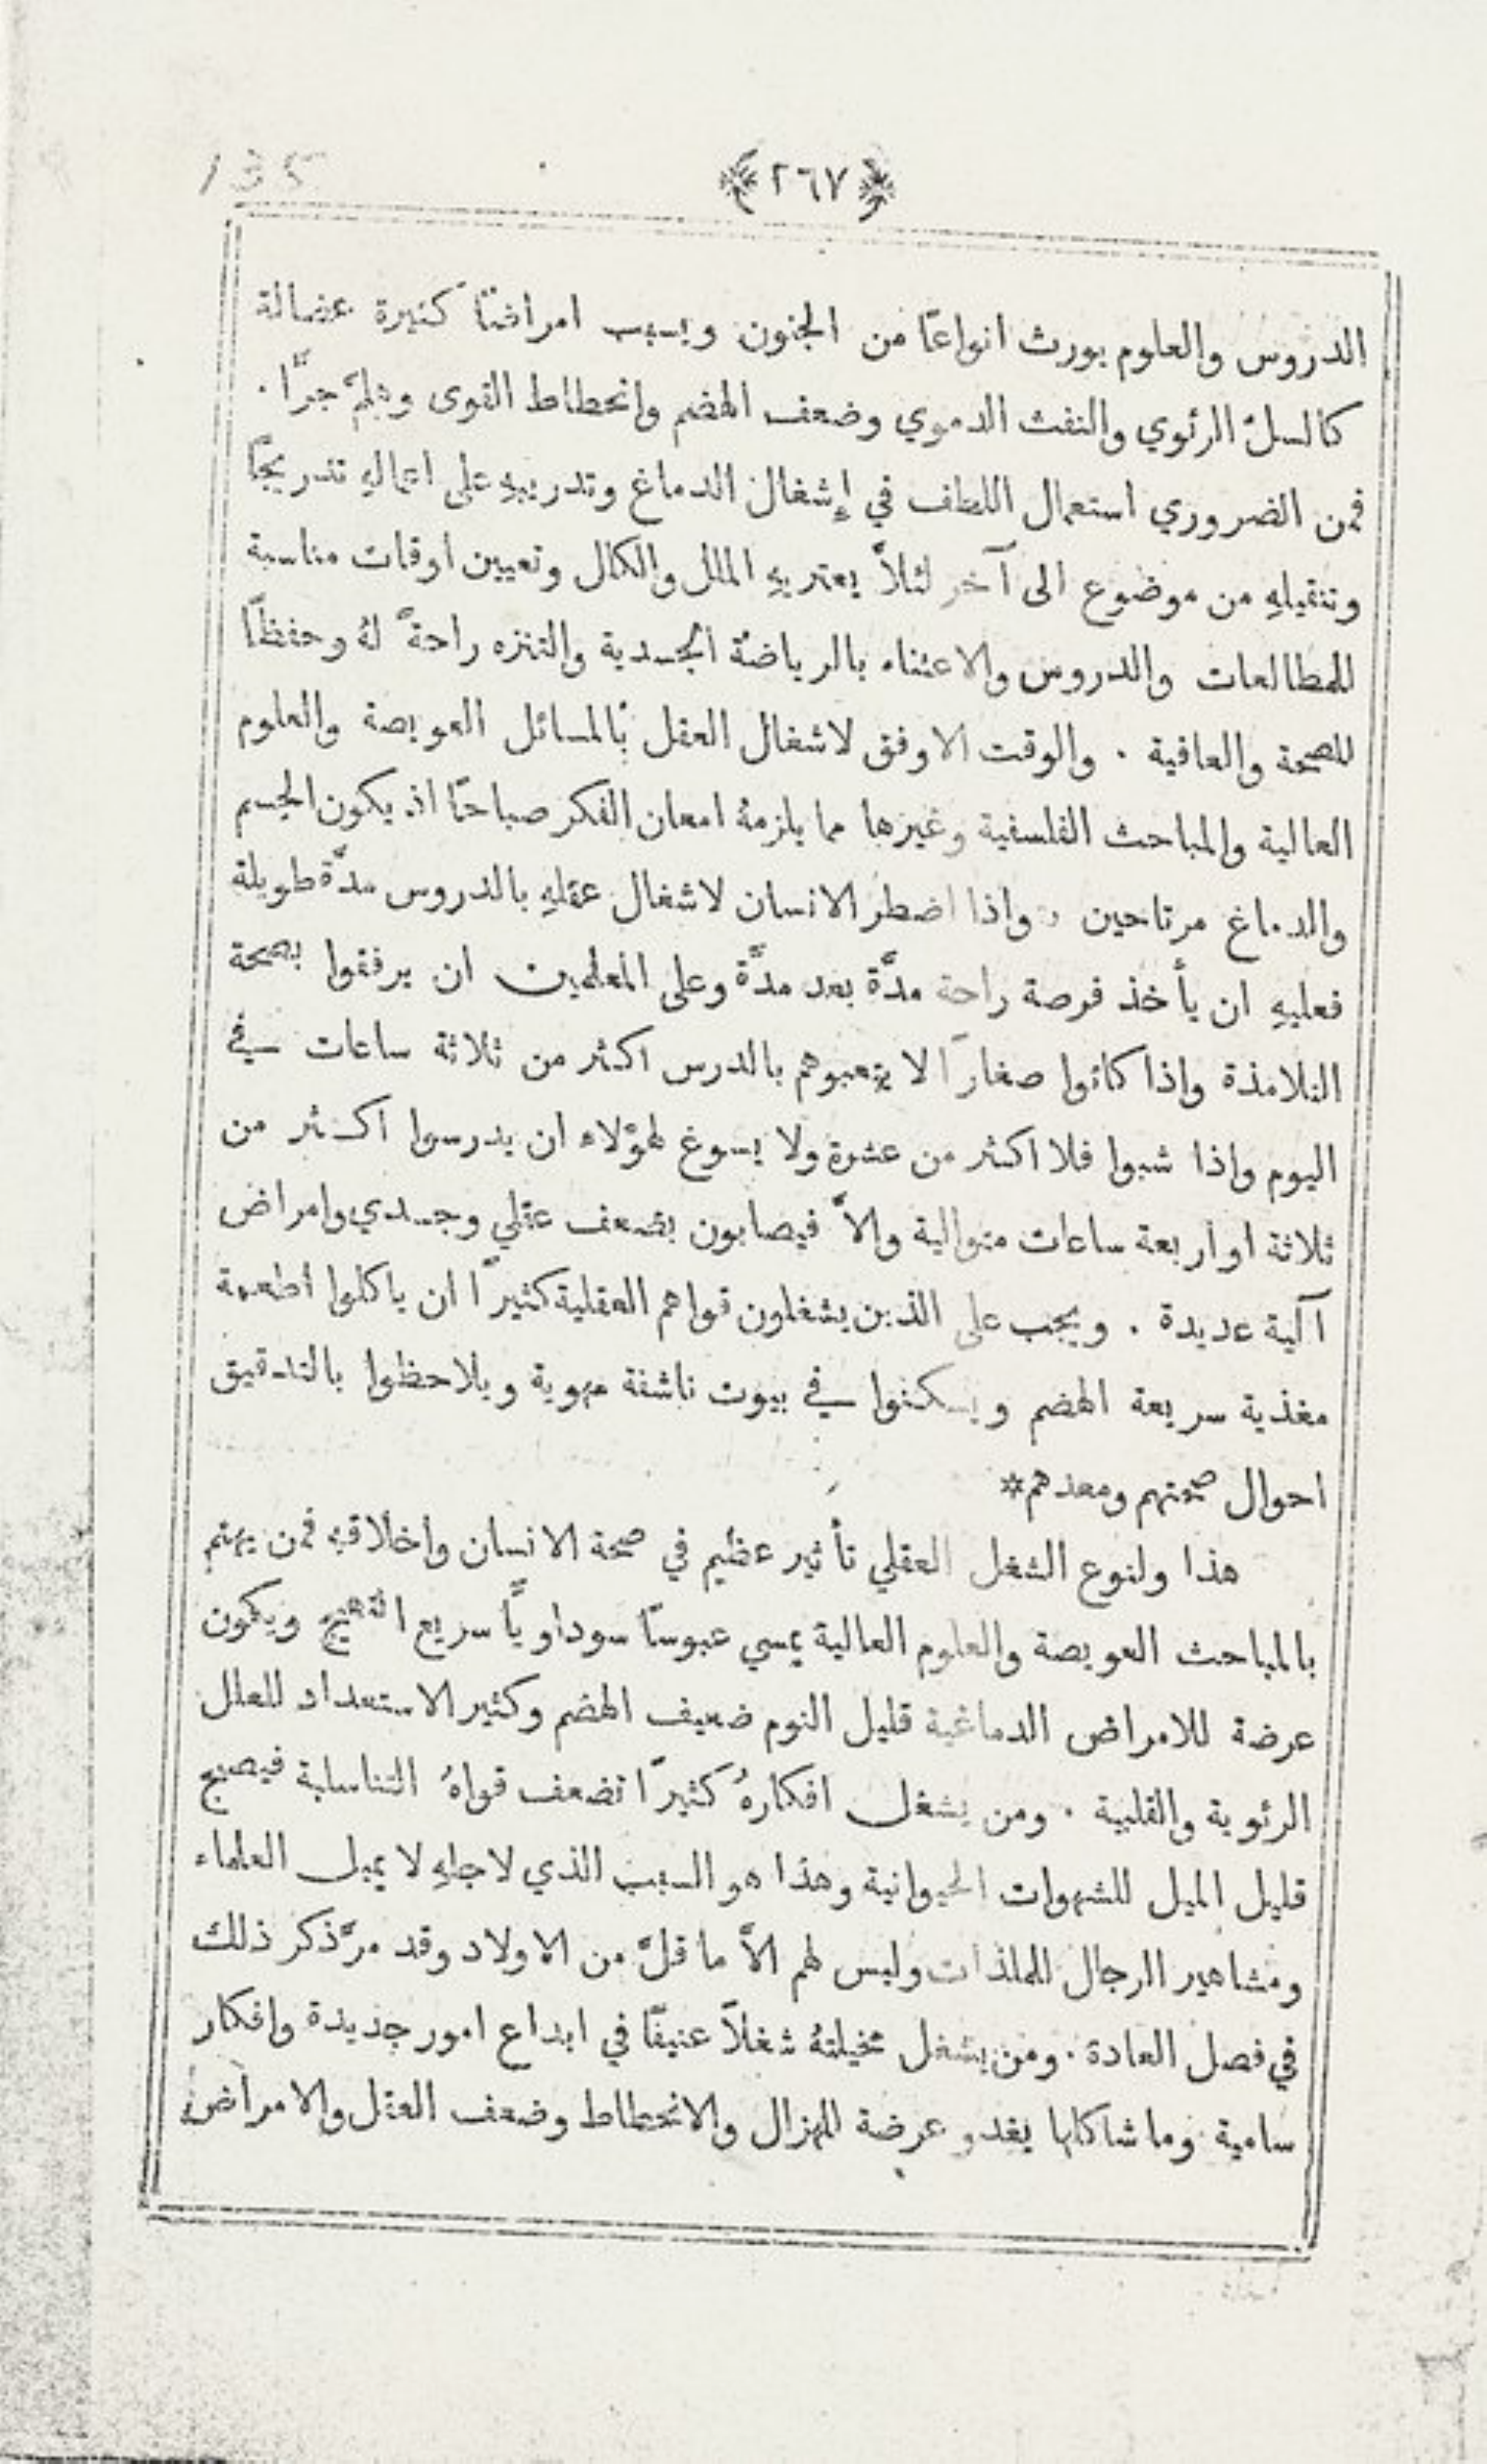 135
﴿٢٦٧﴾
الدروس والعلوم يورث انواعًا من الجنون ويسبب امراضًا كثيرة عضالة
كالسلّ الرئوي والنفث الدموي وضعف الهضم وانحطاط القوى وهلمّ جرًّا .
فمن الضروري استعمال اللطف في إشغال الدماغ وتدريبهِ على اعمالهِ تدريجًا
وتنقيلهِ من موضوع الى آخر لئلاَّ يعتريهِ الملل والكلال وتعيين اوقات مناسبة
للمطالعات والدروس والاعتناء بالرياضة الجسدية والتنزه راحةً لهُ وحفظًا
للصحة والعافية . والوقت الاوفق لاشغال العقل بالمسائل العويصة والعلوم
العالية والمباحث الفلسفية وغيرها مما يلزمهُ امعان الفكر صباحًا اذ يكون الجسم
والدماغ مرتاحين . واذا اضطر الانسان لاشغال عقلهِ بالدروس مدَّة طويلة
فعليهِ ان يأخذ فرصة راحة مدَّة بعد مدَّة وعلى المعلمين ان يرفقوا بصحة
التلامذة واذا كانوا صغارًا لا يتعبوهم بالدرس اكثر من ثلاثة ساعات في
اليوم واذا شبوا فلا اكثر من عشرة ولا يسوغ لهؤلاء ان يدرسوا اكثر من
ثلاثة او اربعة ساعات متوالية والاَّ فيصابون بضعف عقلي وجسدي وامراض
آلية عديدة . ويجب على الذين يشغلون قواهم العقلية كثيرًا ان ياكلوا اطعمة
مغذية سريعة الهضم ويسكنوا في بيوت ناشفة مهوية ويلاحظوا بالتدقيق
احوال صحتهم ومعدهم*
هذا ولنوع الشغل العقلي تأثير عظيم في صحة الانسان واخلاقهِ فمن يهتم
بالمباحث العويصة والعلوم العالية يمسي عبوسًا سوداويًّا سريع التهيج ويكون
عرضة للامراض الدماغية قليل النوم ضعيف الهضم وكثير الاستعداد للعلل
الرئوية والقلبية . ومن يشغل افكارهُ كثيرًا تضعف قواهُ التناسلية فيصبح
قليل الميل للشهوات الحيوانية وهذا هو السبب الذي لاجلهِ لا يميل العلماء
ومشاهير الرجال للملذات وليس لهم الاَّ ما قلَّ من الاولاد وقد مرَّ ذكر ذلك
في فصل العادة . ومن يشغل مخيلتهُ شغلاً عنيفًا في ابداع امور جديدة وافكار
سامية وما شاكلها يغدو عرضة للهزال والانحطاط وضعف العقل والامراض